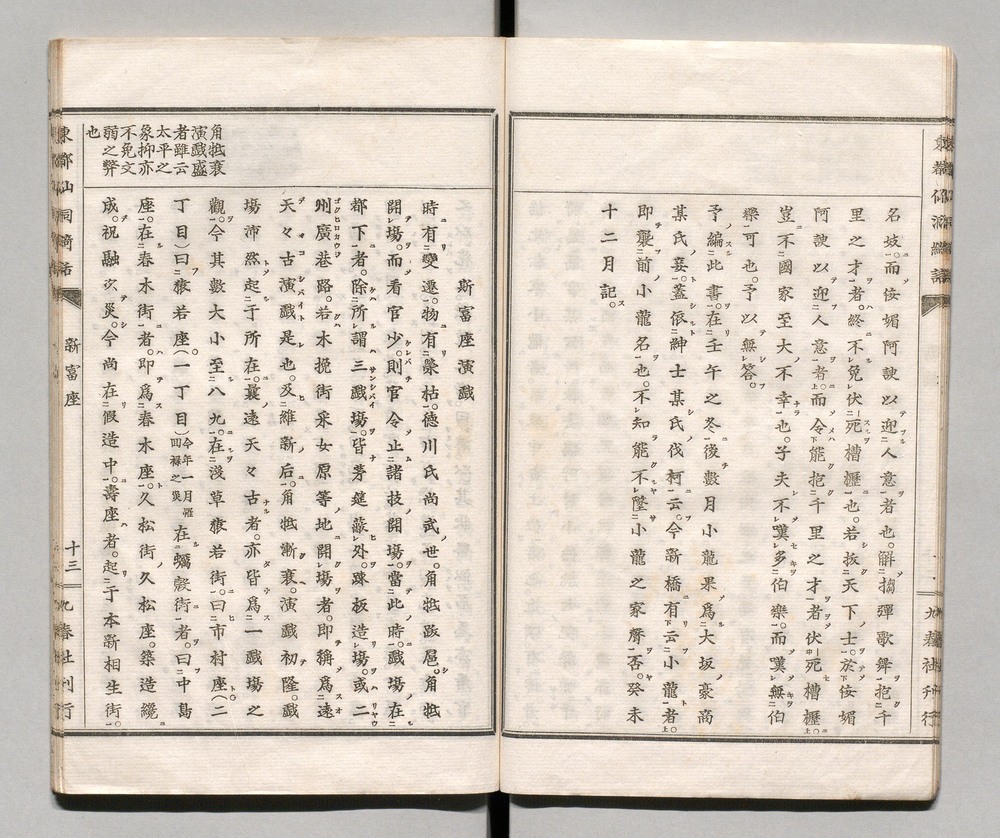 名妓。而佞媚阿諛以迎人意者也。解搊彈歌舞抱千
里之才者。終不免伏死槽櫪也。若拔天下士。於佞媚
阿諛以迎人意者。而令能抱千里之才者伏死槽櫪。
豈不國家至大不幸也。予夫不嘆多伯樂。而嘆無伯
樂可也。予以無答。
予編此書。在壬午之冬。後數月小龍果爲大坂豪商
某氏妾。蓋依紳士某氏伐柯云。今新橋有云小龍者。
即襲前小龍名也。不知能不墜小龍之家聲否。癸未
十二月記。
東都仙洞綺話
新富座
十三
九春社刊行
角觝衰
演戲盛
者雖云
太平之
象抑亦
不免文
弱之弊
也
斯富座演戲
時有變遷。物有榮枯。德川氏尚武世。角觝跋扈。角觝
開場。而看官少。則官令止諸技開場。當此時。戲場在
都下者。除所謂三戲場。皆茅筵蔽外。疎板造場。或二
州廣巷路。若木挽街采女原等地開場者。即稱爲遠
天々古演戲是也。及維新后。角觝漸衰。演戲初隆。戲
場沛然起于所在。曩遠天々古者。亦皆爲一戲場之
觀。今其數大小至八九。在淺草猿若街。曰市村座(二
丁目)曰猿若座。(一丁目)今年一月罹回祿之災在蠣殼街者。曰中島
座。在春木街者。即爲春木座。久松街久松座。築造纔
成。祝融以災。今尚在假造中。壽座者。起于本新相生街。